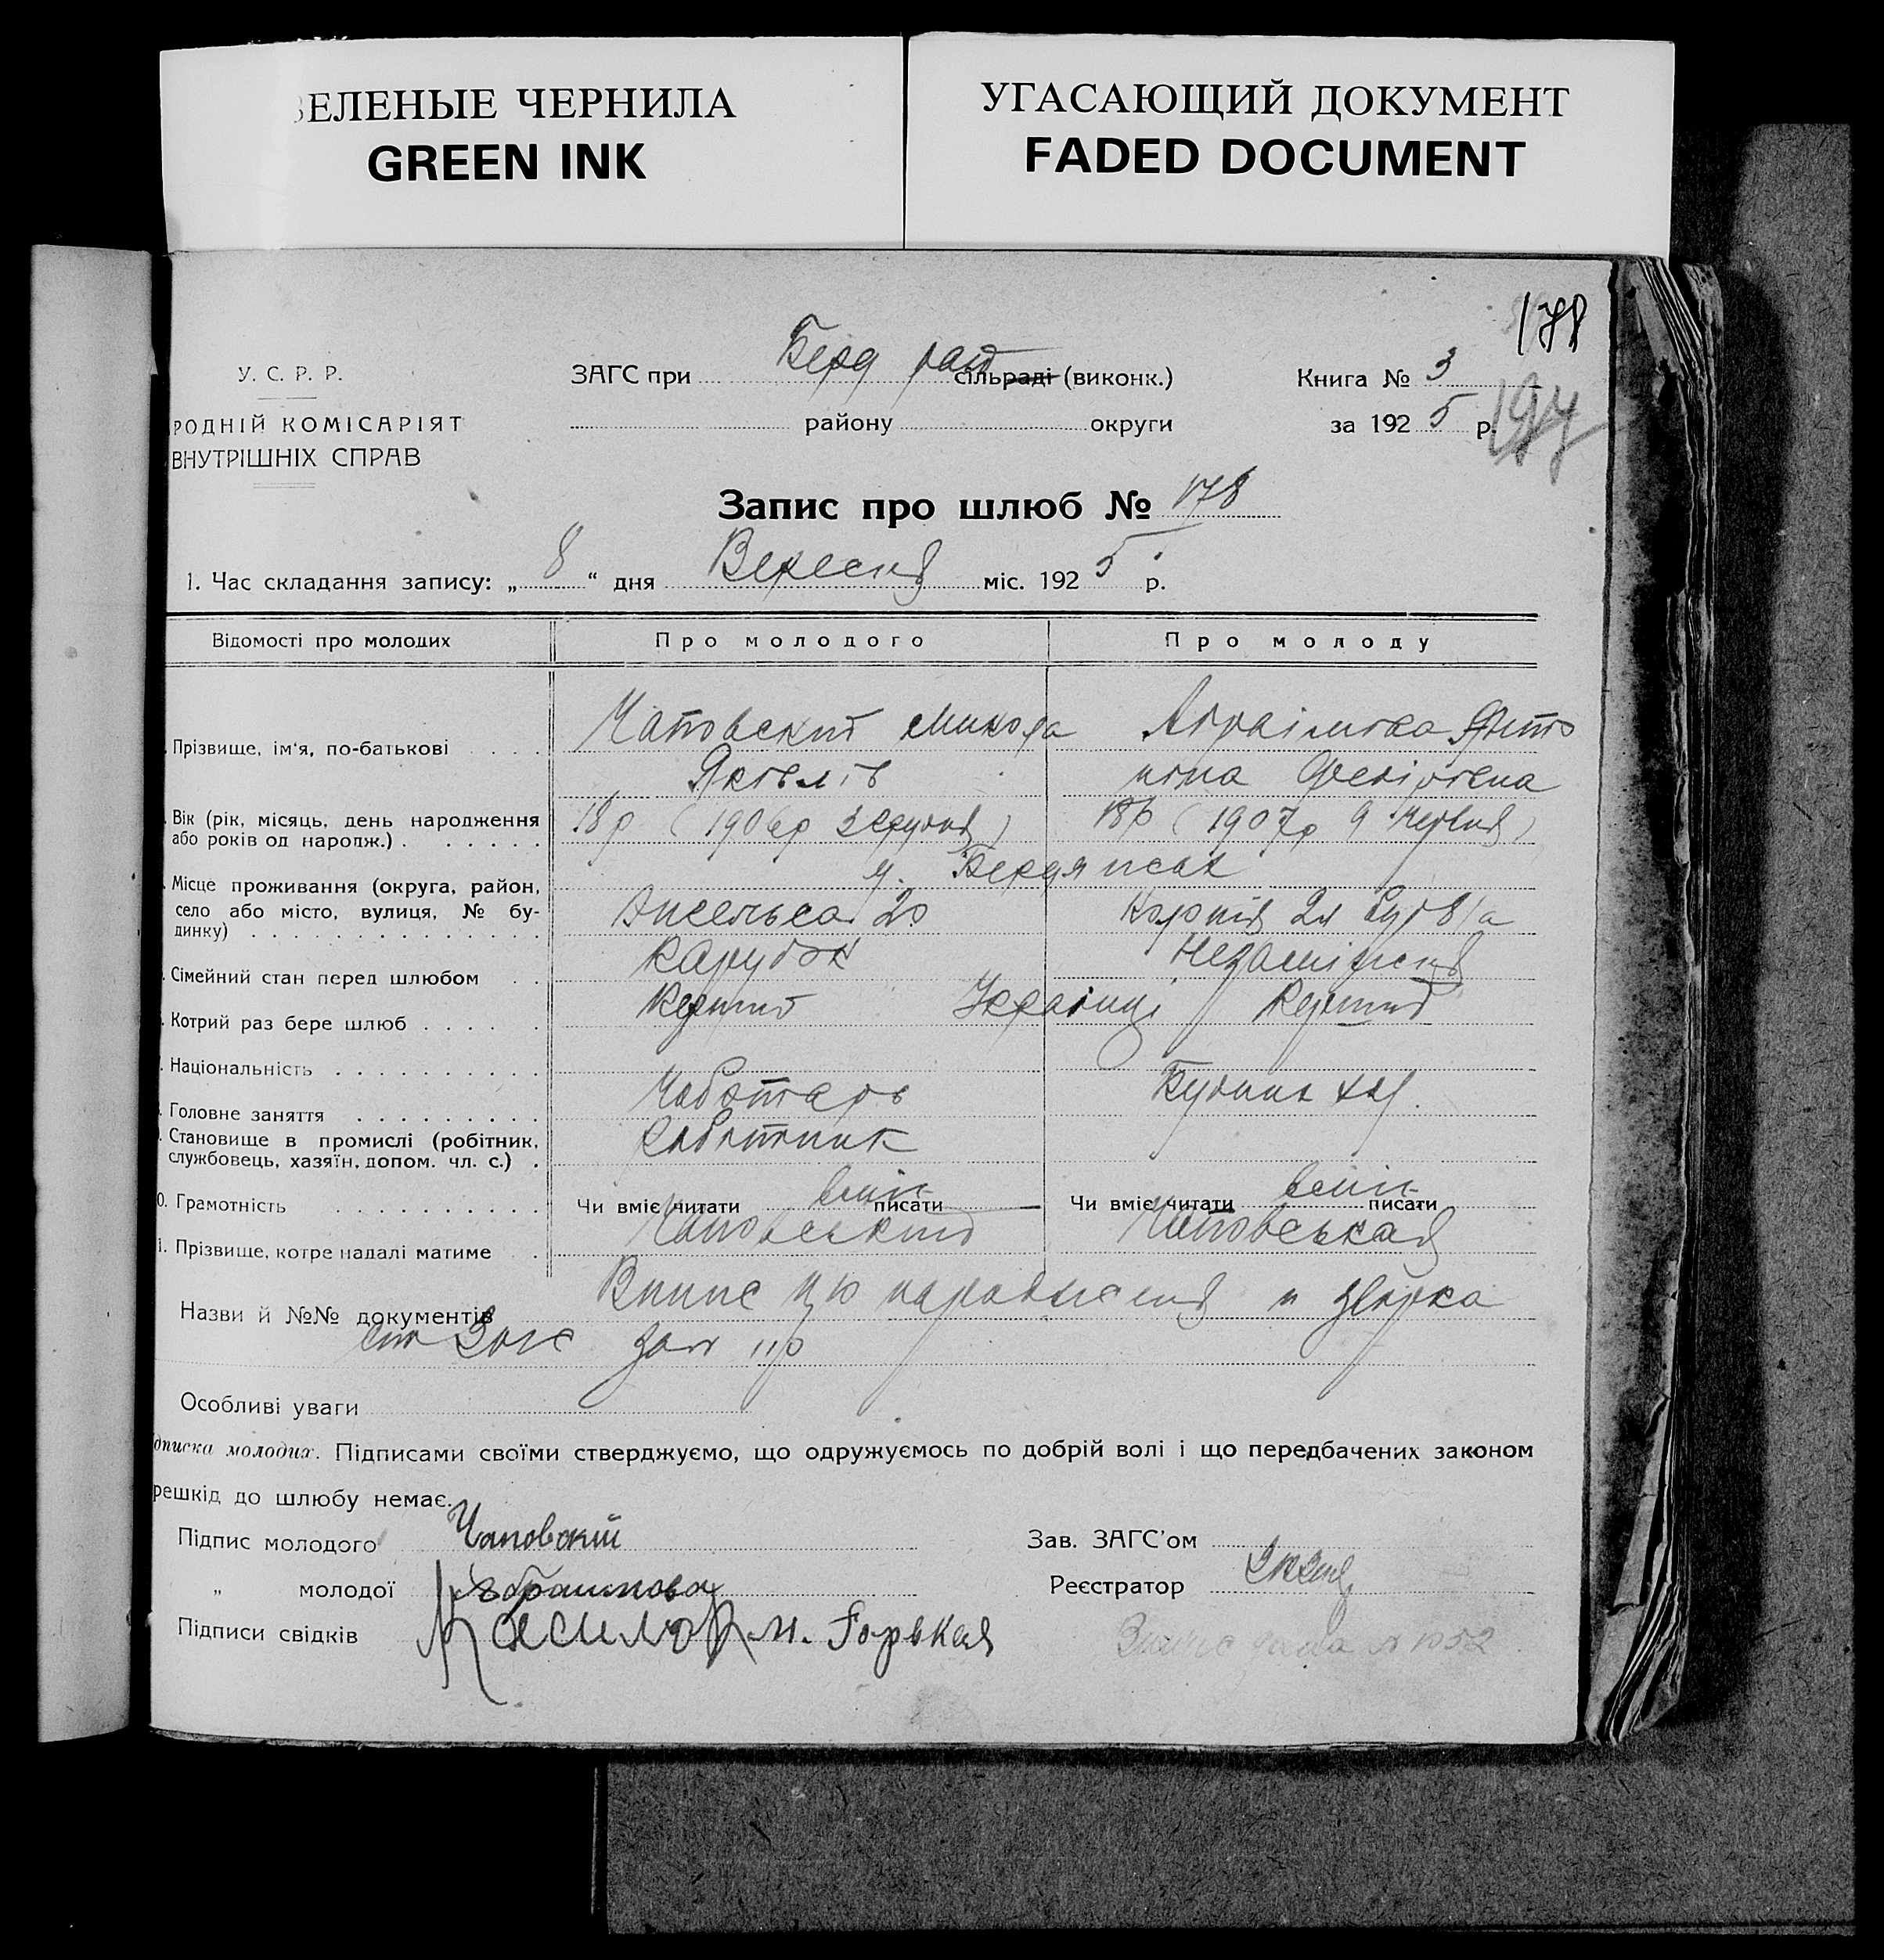 ЗЕЛЕНЫЕ ЧЕРНИЛА
GREEN INK
УГАСАЮЩИЙ ДОКУМЕНТ
FADED DOCUMENT
178
У. С. Р. Р.
РОДНІЙ КОМІСАРІЯТ
ВНУТРІШНІХ СПРАВ
ЗАГС при Берд рай сільраді (виконк.)
району округи
Книга № 3
за 1925 р.
197
Запис про шлюб № 178
1. Час складання запису: „ 8 “ дня Вересня міс. 1925 р.
Відомості про молодих Про молодого Про молоду
Прізвище, ім'я, по-батькові Чаповский Микола
Яковлів
Вік (рік, місяць, день народження або років од народж.) 18р (1906р 3 грудня) 18р (1907р 9 червня)
м. Бердянськ
Місце проживання (округа, район, село або місто, вулиця, № будинку) Энгельса 20
Сімейний стан перед шлюбом парубок Незаміжня
Котрий раз бере шлюб Перший Українці Перший
Національність
Головне заняття Чоботарь
Становище в промислі (робітник, службовець, хазяїн, допом. чл. с.) робітник
0. Грамотність Чи вміє читати вміє писати Чи вміє читати вміє писати
1. Прізвище, котре надалі матиме Чаповський Чаповськая
Назви й №№ документів
Особливі уваги
дписка молодих. Підписами своїми стверджуємо, що одружуємось по добрій волі і що передбачених законом
решкід до шлюбу немає.
Підпис молодого Чаповскій
„ молодої Абраимова
Підписи свідків М. Горькая
Зав. ЗАГС'ом
Реєстратор